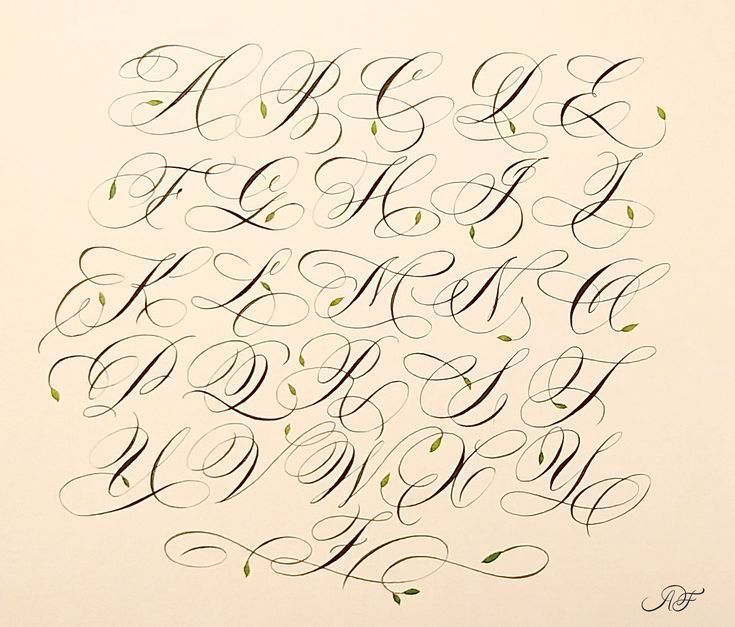 A B C D E
F G H I J
K L M N O
P Q R S T
U V W X Y
Z
AF